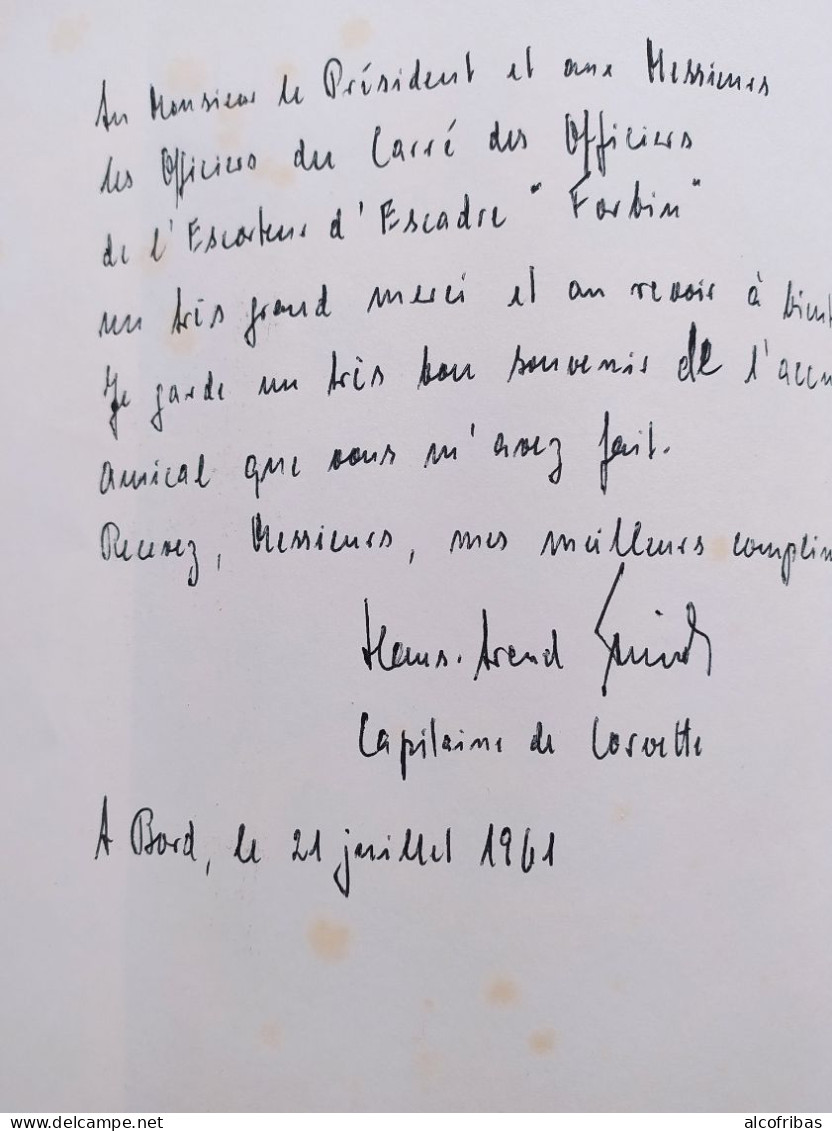 Au Monsieur le Président et aux Messieurs
les Officiers du Carré des Officiers
de l'Escorteur d'Escadre "Forbin"
un très grand merci et au revoir à bient
Je garde un très bon souvenir de l'accu
amical que vous m'avez fait.
Recevez, Messieurs, mes meilleurs complim
Hans-Arend
Capitaine de Corvette
A Bord, le 21 juillet 1961
delcampe.net
alcofribas